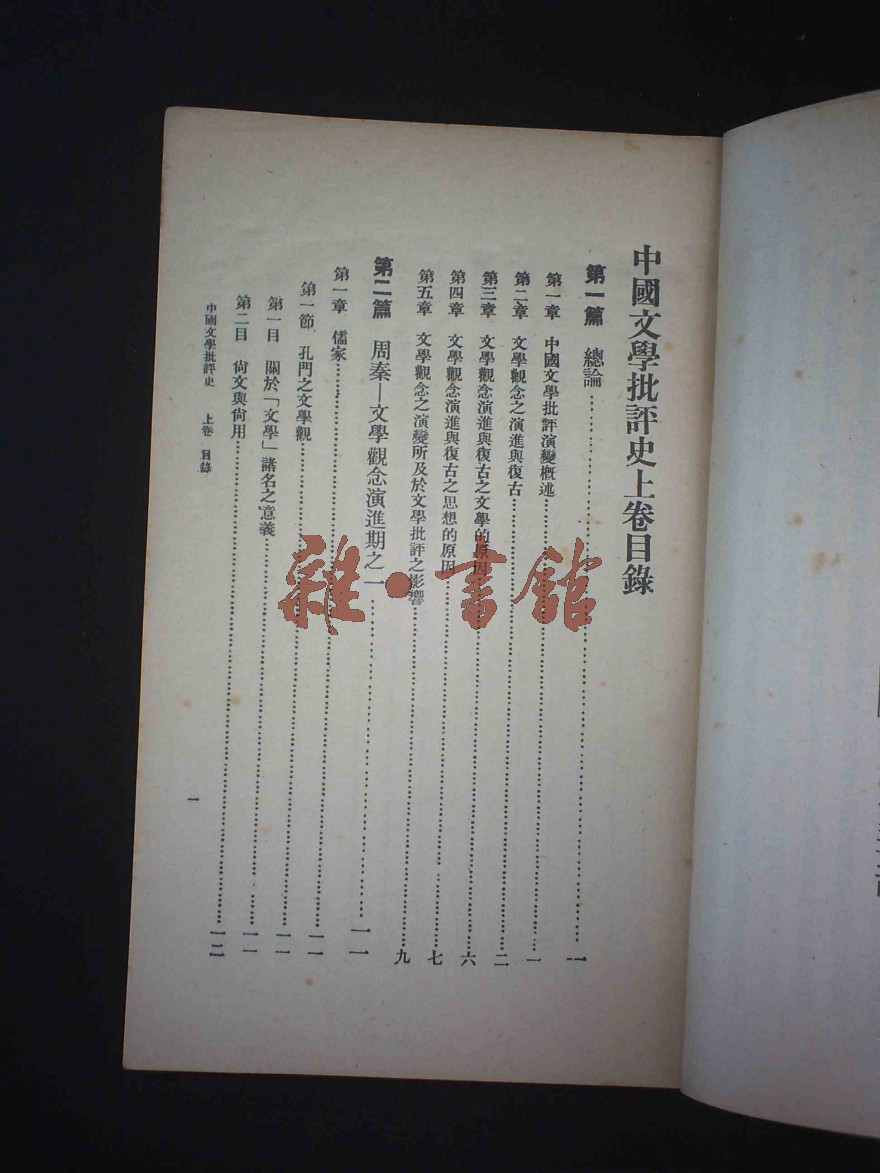 中國文學批評史上卷目錄
第一篇 總論……一
第一章 中國文學批評演變概述……一
第二章 文學觀念之演進與復古……二
第三章 文學觀念演進與復古之文學的原因……六
第四章 文學觀念演進與復古之思想的原因……七
第五章 文學觀念之演變所及於文學批評之影響……九
第二篇 周秦—文學觀念演進期之一……一一
第一章 儒家……一一
第一節 孔門之文學觀……一一
第一目 關於「文學」諸名之意義……一一
第二目 尙文與尙用……一二
中國文學批評史 上卷 目錄
一
雜·書館